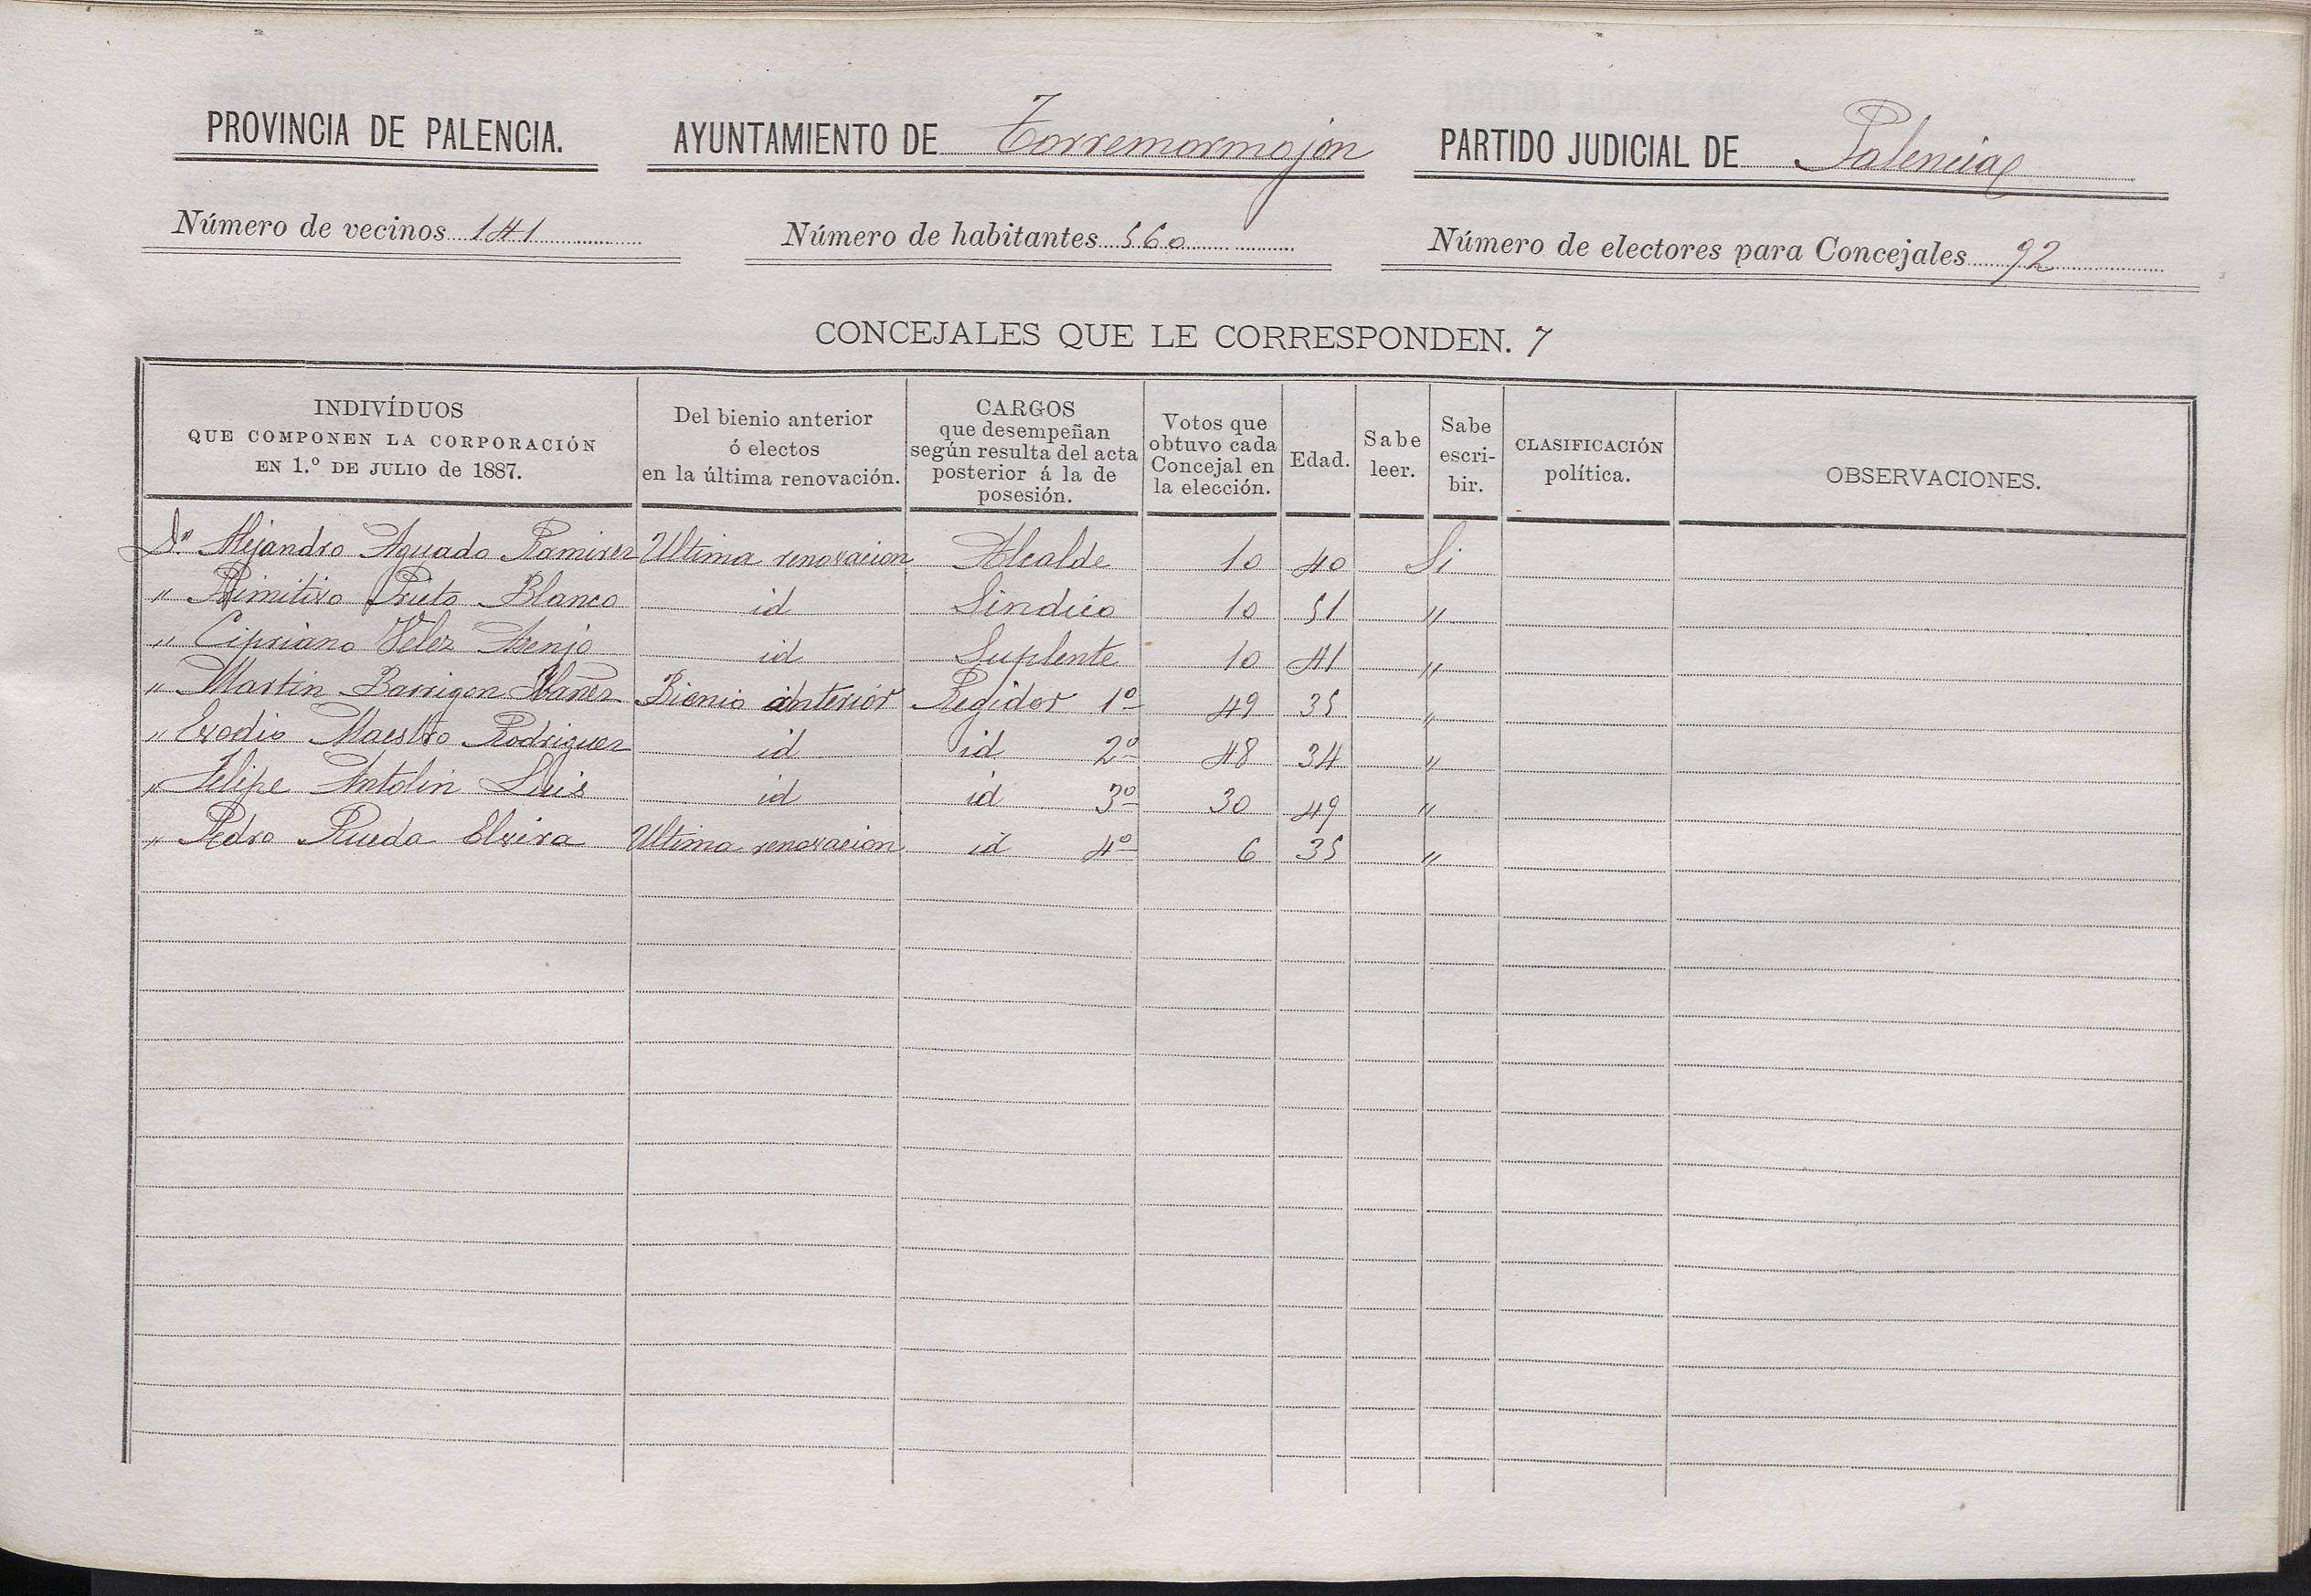 PROVINCIA DE PALENCIA. AYUNTAMIENTO DE Torremormojon PARTIDO JUDICIAL DE Palencia
Número de vecinos 141 Número de habitantes 560 Número de electores para Concejales 92
CONCEJALES QUE LE CORRESPONDEN. 7
INDIVÍDUOS
QUE COMPONEN LA CORPORACIÓN
EN 1.º DE JULIO de 1887.
Del bienio anterior
ó electos
en la última renovación.
CARGOS
que desempeñan
según resulta del acta
posterior á la de
posesión.
Votos que
obtuvo cada
Concejal en
la elección.
Edad.
Sabe
leer.
Sabe
escri-
bir.
CLASIFICACIÓN
política.
OBSERVACIONES.
Dn Alejandro Aguado Ramirez Ultima renovacion Alcalde 10 40 Si
" Primitivo Prieto Blanco id Sindico 10 51 "
" Cipriano Velez Asenjo id Suplente 10 41 "
" Martin Barrigon Ibañez Bienio anterior Regidor 1º 49 35 "
" Evodio Maestro Rodriguez id id 2º 48 34 "
" Felipe Antolin Luis id id 3º 30 49 "
" Pedro Rueda Elvira Ultima renovacion id 4º 6 35 "